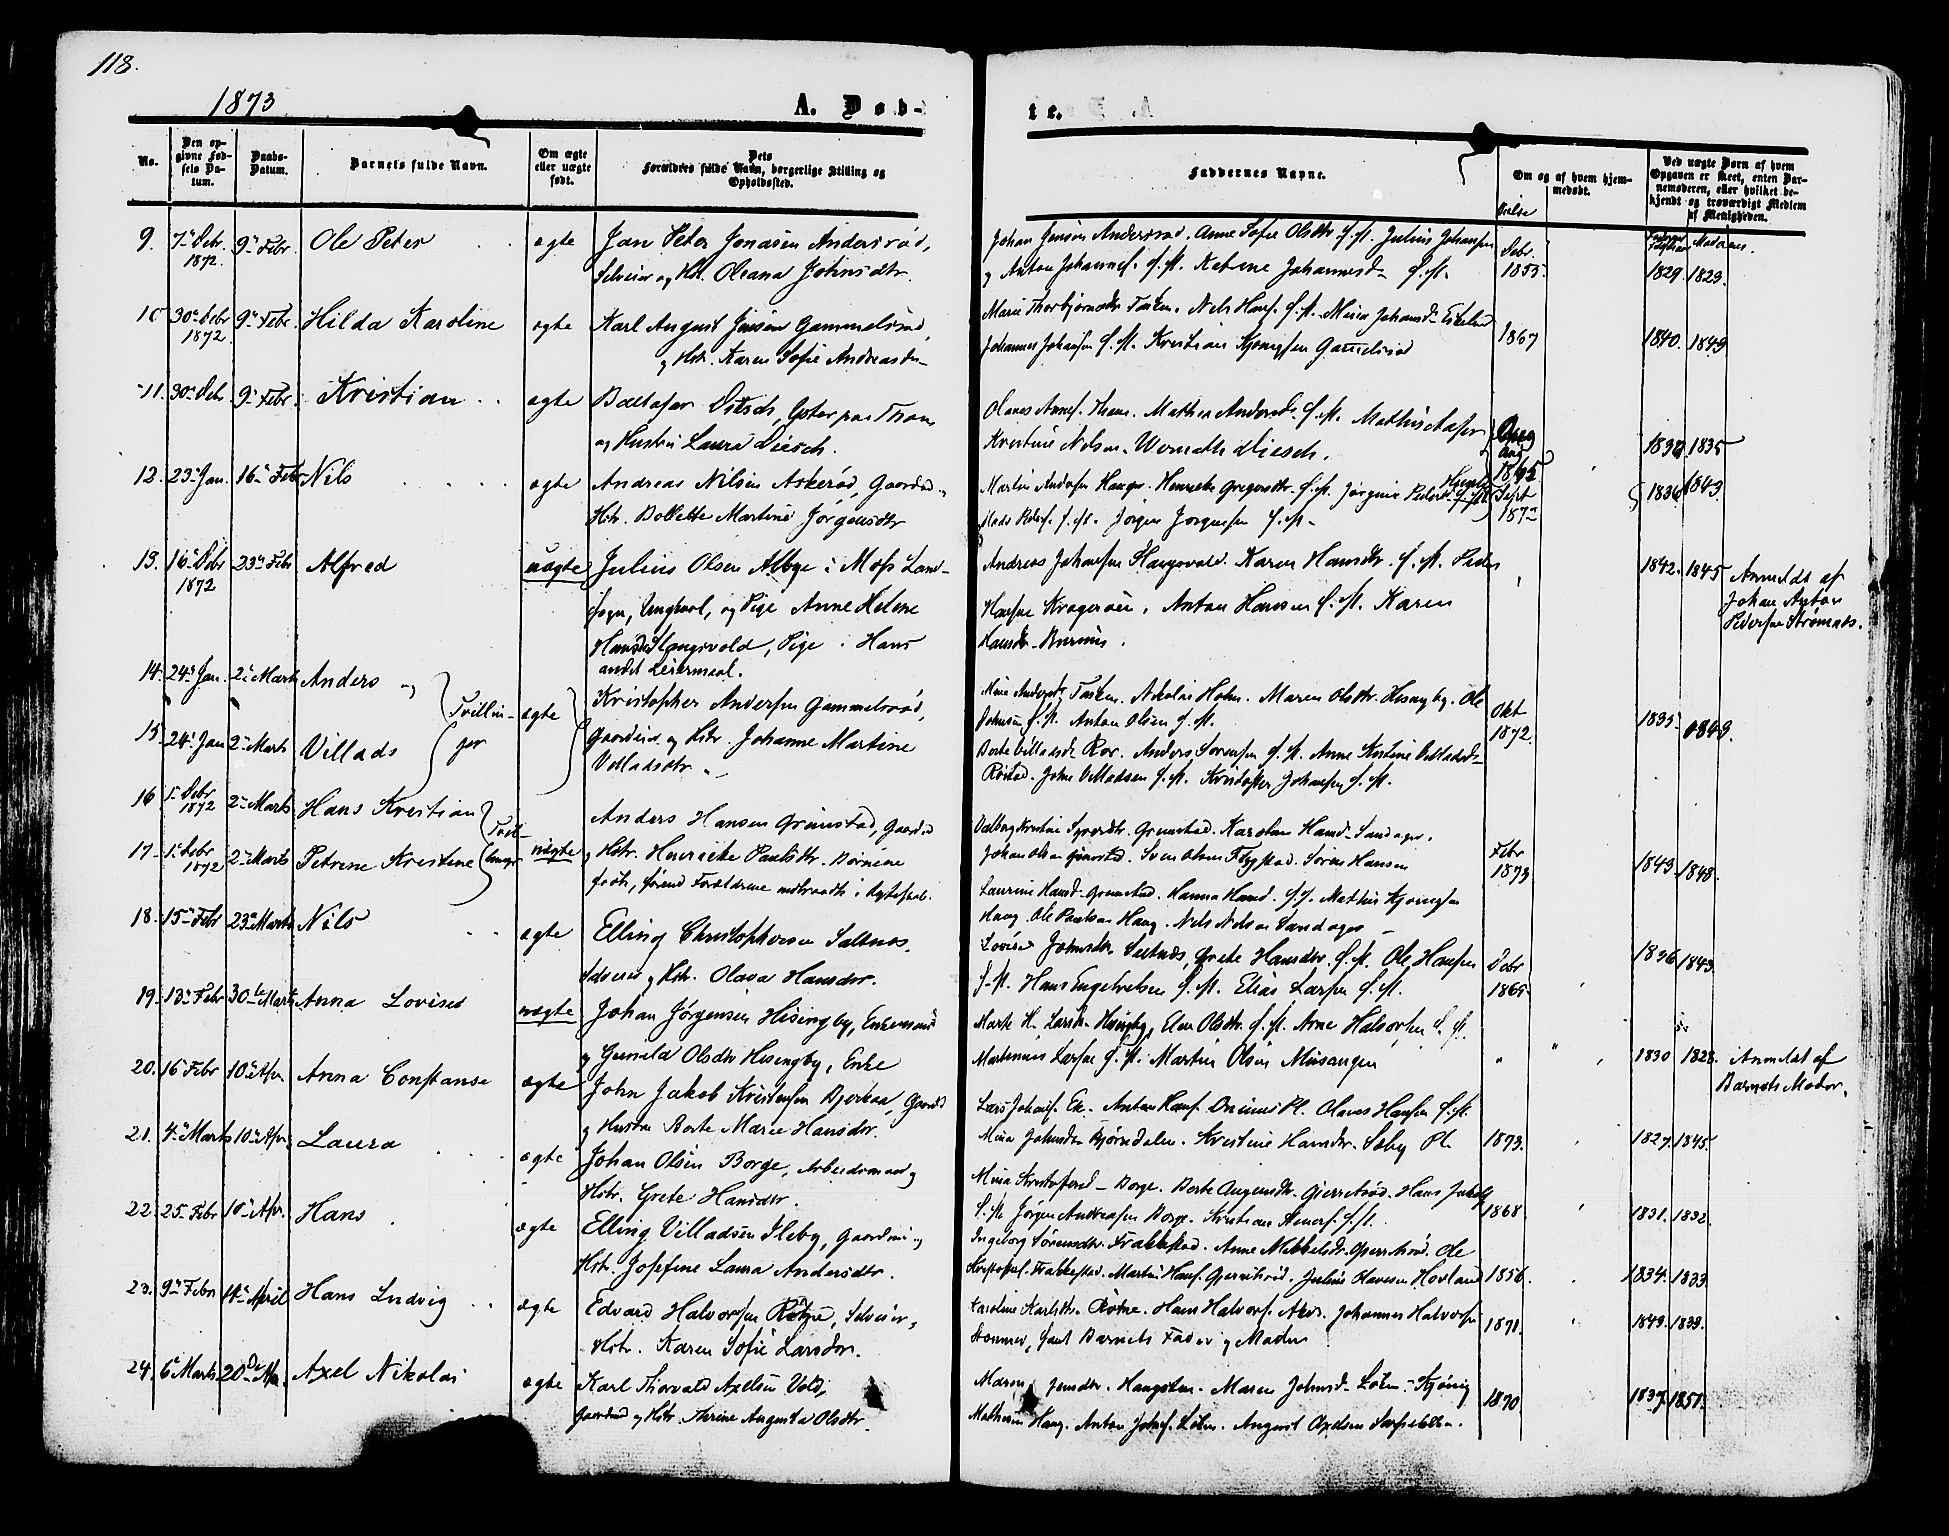 118.
1873
A. Døb-
te.
No.
Den op-
givne Fød-
sels Da-
tum.
Daabs-
Datum.
Barnets fulde Navn.
Om ægte
eller uægte
født.
Dets
Forældres fulde Navn, borgerlige Stilling og
Opholdssted.
Faddernes Navne.
Om og af hvem hjem-
medøbt.
Ved uægte Børn af hvem
Opgaven er skeet, enten Bar-
nemoderen, eller hvilket be-
kjendt og troværdigt Medlem
af Menigheden.
9. 7de Debr. 1872. 9de Febr. Ole Peter ægte Jan Peter Jonasen Andersrød,
Selveier og Hst. Oleana Johnsdtr.
Johan Jensen Andersrød. Anne Sofie Olsdtr S. St. Julius Johansen
og Anton Johannes. S. St. Katrine Johannesd. S. St.
Debr. 1855. 1829. 1823.
10 30te Debr 1872. 9de Febr. Hilda Karoline ægte Karl August Jensen Gammelsrød,
og Hstr. Karen Sofie Andreasdtr
Marie Thorbjørnsdtr Tasken. Nels Hans. S. St.
Johannes Johansen S. St. Kristian
1867 1840. 1849
11. 30te Debr 9de Febr. Kristian ægte Baltasar Diesch,
og Hustru Laura Diesch.
Olaves Annes. Mathea Andersd. S. St.
Kristine Nelsen. Diesch.
1865 1836 1835
12. 23de Jan. 16de Febr Nils ægte Andreas Nilsen Askerød, Gaardbr.
Hstr. Bollette Martine Jørgensdtr
Martin Anders. Hauger. Henrikke Gregersdtr. S. St. Jørgine Peders. S. St.
Mads Peders. S. St. Jørgen Jørgensen S. St.
Sept 1872 1836 1843.
13. 16de Debr 1872 23de Febr Alfred uægte Julius Olsen Albye i Moss Land-
sogn, Ungkarl, og Pige Anne Helene
Hansdtr Slangsvold, Pige. Hans
andet Leiermaal.
Andreas Johansen Slangsvold. Karen Hansdtr. S. St. Peder
Hansen Kragerøen. Anton Hansen S. St. Karen
Hansdtr
1842. 1845 Anmeldt af
Johan Anton
Pedersen Strømnæs.
14. 24de Jan. 2de Marts Anders og
15 24de Jan 2de Marts Villads
Tvillin-
ger
ægte
Kristopher Andersen Gammelsrød,
Gaardeier og Hstr. Johanne Martine
Villadsdtr.
Tasken. Nikolai Holm. Maren Olsdtr. Huseby. Ole
Johnsen S. St. Anton Olsen S. St.
Berte Villadsdtr Rør. Anders Sørensen S. St. Anne Kristine Villadsd.
Røstad. John Villadsen S. St. Kristoffer Johansen S. St.
Okt 1872. 1835 1849.
16 1ste Debr 1872 2de Marts Hans Kristian
17. 1ste Debr 1872 2de Marts Petrine Kristine
Tvil-
linger
uægte
Anders Hansen Grimstad, Gaardbr
og Hstr. Henrikke Paulsdtr. Børnene
født, førend Forældrene indtraadte i Ægteskab.
Valborg Kristine Syversdtr. Grimstad. Karolan Hansd. Sandager.
Johan Olsen Grimstad. Sven Olsen Flystad. Søren Hansen
Laurine Hansd. Grimstad. Hanna Hansd. S. St. Mathis
Haug. Ole Paulsen Haug. Nels Nelsen Sandager
Febr 1873 1843 1848.
18. 15de Febr 23de Marts Nils ægte Elling Christophersen Saltnes.
Selveier og Hstr. Olava Hansdtr.
Lovise Johnsdtr. Saltnes, Grete Hansdtr. S. St. Ole Hansen
S. St. Hans Engebretsen S. St. Elias Larsen S. St.
Debr 1865. 1836 1843.
19. 13de Febr 30te Marts Anna Lovise uægte Johan Jørgensen Hesingby, Enkemand
og Gunnild Olsdtr Hesingby, Enke
Marte H. Larsdtr Hesingby, Elen Olsdtr. S. St. Arne Halvorsen S. St.
Martinius Larsen S. St. Martin Olsen
1830 1828. Anmeldt af
Barnets Moder.
20. 16de Febr 10de Apr. Anna Constanse ægte John Jakob Kristensen Bjerkaa, Gaardbr
og Hustru Berte Marie Hansdtr.
Lars Johans. Ek. Anton Hans. Pl. Olaves Hansen S. St.
Mina Johnsdtr Bjørndalen. Kristine Hansdtr. Sæby Pl.
1873. 1827. 1845.
21. 4de Marts 10de Apr. Laura ægte Johan Olsen Borge, Arbeidsmand og
Hstr. Grete Hansdtr.
Mina Kristofersd. Borge. Berte Augensdtr. Gjerretsrød. Hans
S. St. Jørgen Andreasen Borge. Kristian Steners. S. St.
1868. 1831. 1832.
22. 25de Febr 10de Apr. Hans ægte Elling Villadsen Ileby, Gaardmd og
Hstr. Josefine Laura Andersdtr.
Ingeborg Sørensdtr. Frakkestad. Anne Mikkelsdtr. Gjerretsrød. Ole
Kristofs. Frakkestad. Martin Hans. Gjerretsrød. Julius Olavesen Hovland
1856. 1834. 1833
23. 9de Febr 14de April Hans Ludvig ægte Edvard Halvorsen Rødne, Selveier,
Hstr. Karen Sofie Larsdtr.
Karoline Karlsdtr. Rødne. Hans Halvors. Johannes Halvorsen
samt Barnets Fader og Moder
1871. 1849. 1839.
24. 6te Marts 20de Apr. Axel Nikolai ægte Karl Thorvald Axelsen Vold,
Gaardmd og Hstr. Therine Augusta Olsdtr.
Maren Jensdtr. Haugsten. Maren Johnsd.
Mathias Haug. Anton Johns. August Axelsen
1870 1837. 1851.